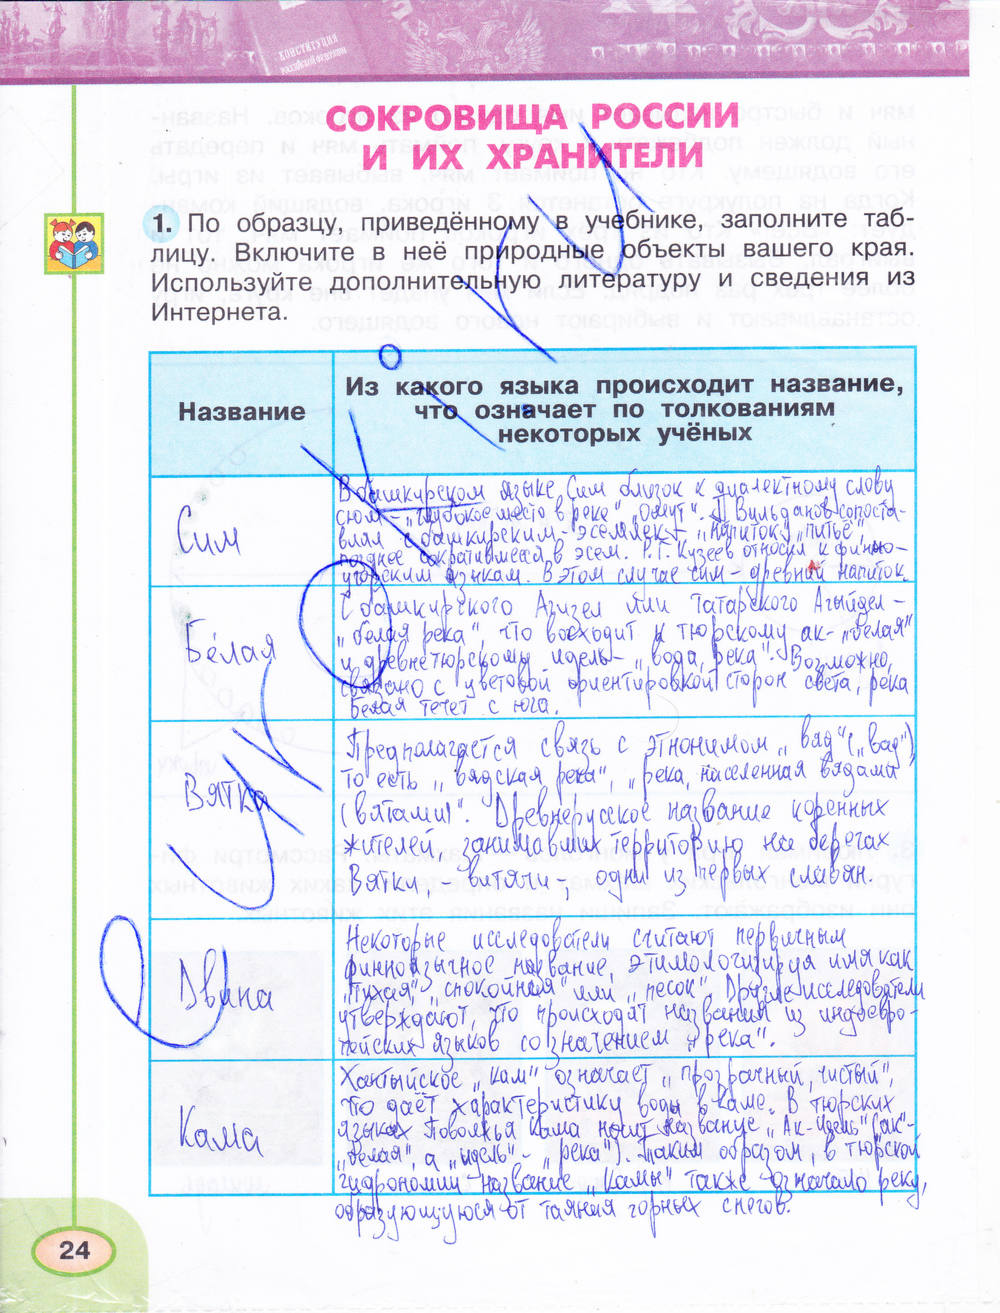 КОНСТИТУЦИЯ
СОКРОВИЩА РОССИИ
И ИХ ХРАНИТЕЛИ
1. По образцу, приведённому в учебнике, заполните таб-
лицу. Включите в неё природные объекты вашего края.
Используйте дополнительную литературу и сведения из
Интернета.
Название
Из какого языка происходит название,
что означает по толкованиям
некоторых учёных
Сим
В башкирском языке Сим близок к диалектному слову
сюм - "глубокое место в реке" "Омут". Вильданов сопоста-
влял с башкирским - эсемлек - "напиток", "питьё",
позднее сократившееся в эсем. Р.Г. Кузеев относил к финно-
угорским языкам. В этом случае сим - древний напиток.
Бе́лая
С башкирского Агизел или татарского Агыйдел -
"белая река", что восходит к тюрскому ак - "белая"
и древнетюрскому идель - "вода, река". Возможно,
связано с цветовой ориентировкой сторон света, река
Белая течет с юга.
Вятка
Предполагается связь с этнонимом "вяд" ("вад"),
то есть "вядская река", "река, населенная вядами
(вятами)". Древнерусское название коренных
жителей, занимавших территорию на берегах
Вятки, - витячи -, одни из первых славян.
Двина
Некоторые исследователи считают первичным
финноязычное название, этимологизируя имя как
"тихая", "спокойная" или "песок". Другие исследователи
утверждают, что происходят названия из индоевро-
пейских языков со значением "река".
Кама
Хантыйское "кам" означает "прозрачный, чистый",
что даёт характеристику воды в Каме. В тюрских
языках Поволжья Кама носит название "Ак-Идель" (ак -
"белая", а "идель" - "река"). Таким образом, в тюрской
гидронимии название "Камы" также означало реку,
образующуюся от таяния горных снегов.
24